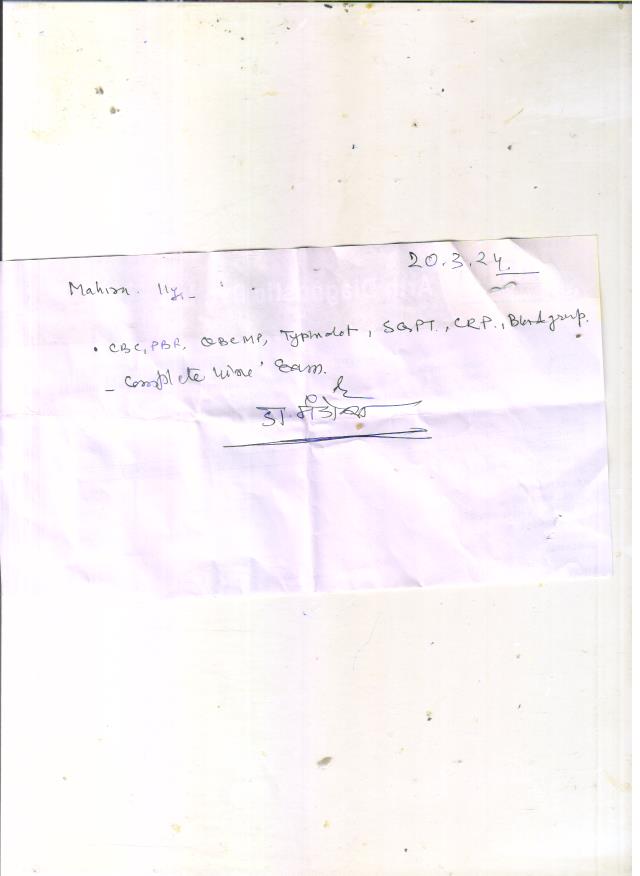 20.3.24.
Mahira. 11y
• CBC, PBF, QBCMP, Typhidot, SGPT., CRP., Blood group.
- Complete urine Exam.
डा.